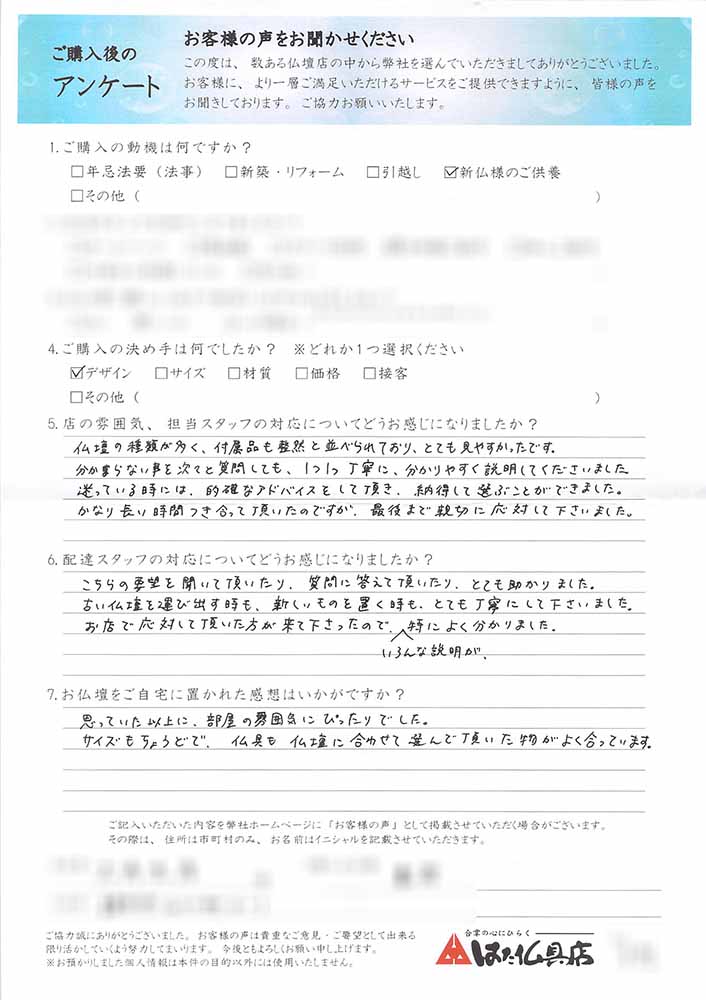 ご購入後の
アンケート
お客様の声をお聞かせください
この度は、数ある仏壇店の中から弊社を選んでいただきましてありがとうございました。
お客様に、より一層ご満足いただけるサービスをご提供できますように、皆様の声を
お聞きしております。ご協力お願いいたします。
1.ご購入の動機は何ですか?
□年忌法要(法事) □新築・リフォーム □引越し ☑新仏様のご供養
□その他( )
4.ご購入の決め手は何でしたか? ※どれか1つ選択ください
☑デザイン □サイズ □材質 □価格 □接客
□その他( )
5.店の雰囲気、担当スタッフの対応についてどうお感じになりましたか?
仏壇の種類が多く、付属品も整然と並べられており、とても見やすかったです。
分からない事を次々と質問しても、1つ1つ丁寧に、分かりやすく説明してくださいました
迷っている時には、的確なアドバイスをして頂き、納得して選ぶことができました。
かなり長い時間つき合って頂いたのですが、最後まで親切に応対して下さいました。
6.配達スタッフの対応についてどうお感じになりましたか?
こちらの要望を聞いて頂いたり、質問に答えて頂いたり、とても助かりました。
古い仏壇を運び出す時も、新しいものを置く時も、とても丁寧にして下さいました。
お店で応対して頂いた方が来て下さったので、特によく分かりました。
いろんな説明が、
7.お仏壇をご自宅に置かれた感想はいかがですか?
思っていた以上に、部屋の雰囲気にぴったりでした。
サイズもちょうどで、仏具も仏壇に合わせて選んで頂いた物がよく合っています。
ご記入いただいた内容を弊社ホームページに「お客様の声」として掲載させていただく場合がございます。
その際は、住所は市町村のみ、お名前はイニシャルを記載させていただきます。
ご協力誠にありがとうございました。お客様の声は貴重なご意見・ご要望として出来る
限り活かしていくよう努力してまいります。今後ともよろしくお願い申し上げます。
※お預かりしました個人情報は本件の目的以外には使用いたしません。
合掌の心にひらく
はた仏具店